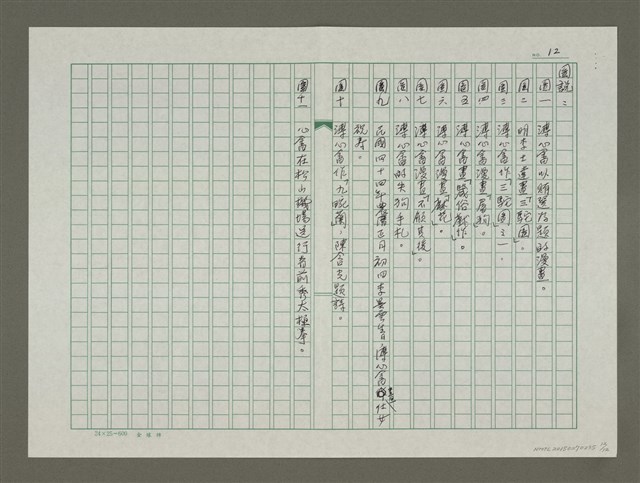 NO. 12
圖說：
圖一 溥心畬以賄選為題的漫畫。
圖二 明李士達畫「三駝圖」。
圖三 溥心畬作「三駝圖」之一。
圖四 溥心畬漫畫「屠狗」。
圖五 溥心畬畫「賤俗獻作」。
圖六 溥心畬漫畫「獻花」。
圖七 溥心畬漫畫「不顧其後」。
圖八 溥心畬的失狗手札。
圖九 民國四十四年農曆正月初四李墨雲生日，溥心畬畫仕女
祝壽。
圖十 溥心畬作「九畹蘭」，陳含光題詩。
圖十一 心畬在松山機場送行者前秀太極拳。
24×25=600